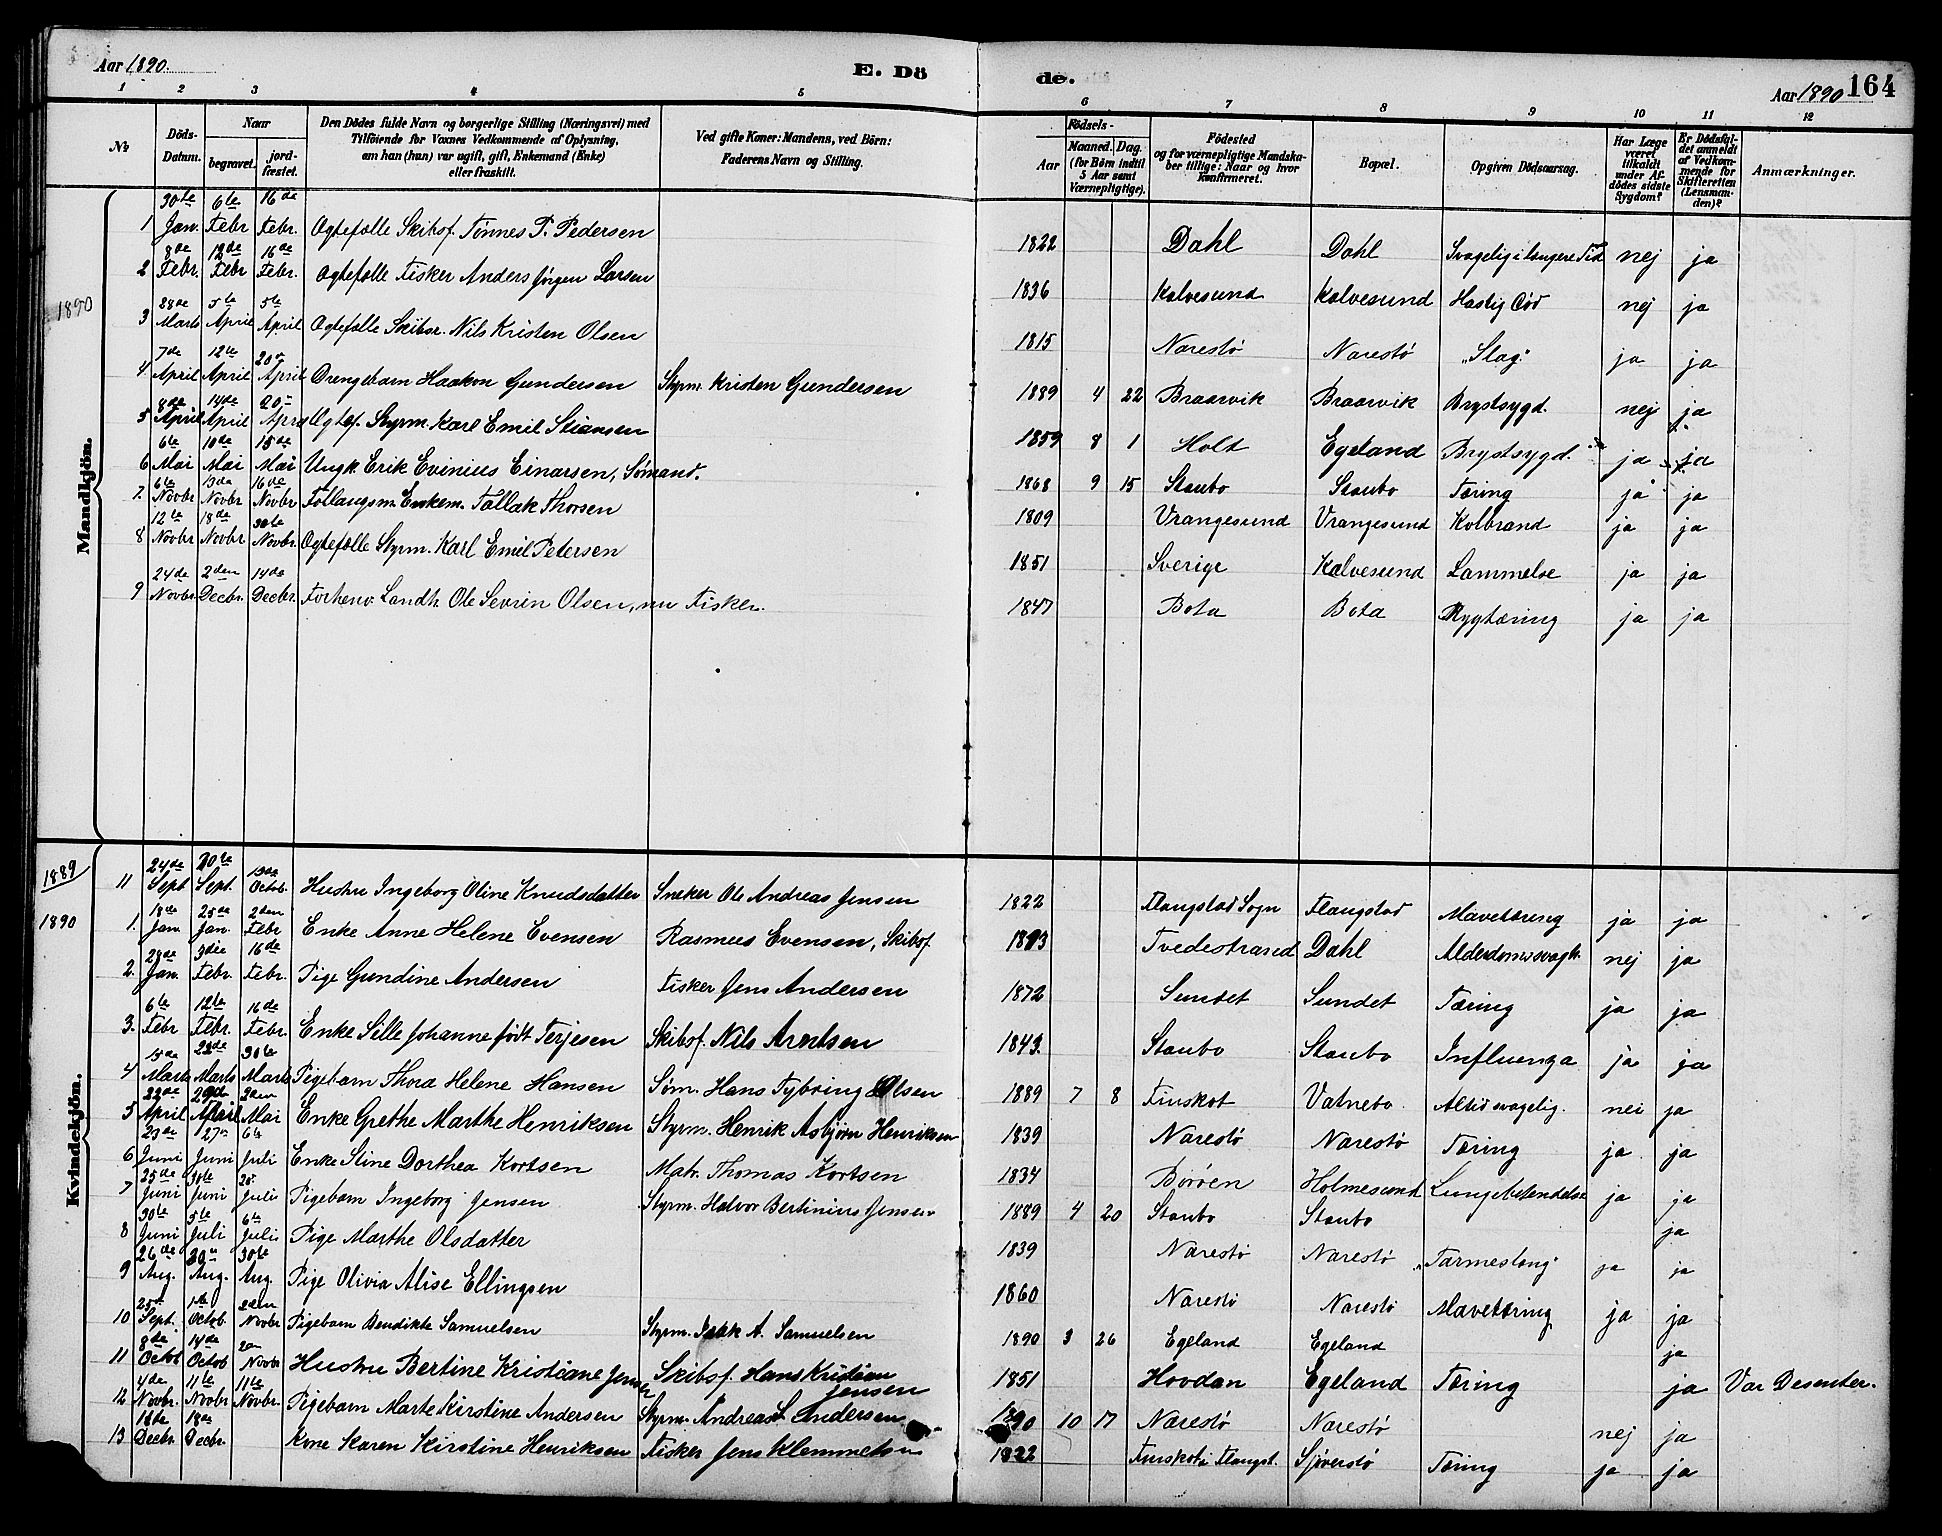 Aar 1890. E. Dö de. Aar 1890 164
1 2 3 4 5 6 7 8 9 10 11 12
No. Döds-Datum. Naar begravet. jordfæstet. Den Dødes fulde Navn og borgerlige Stilling (Næringsvei) med Tilföiende for Voxnes Vedkommende af Oplysning, om han (hun) var ugift, gift, Enkemand (Enke) eller fraskilt. Ved gifte Koner: Mandens, ved Börn: Faderens Navn og Stilling. Födsels- Aar Maaned. Dag. (for Börn indtil 5 Aar samt Værnepligtige). Födested og for værnepligtige Mandskaber tillige: Naar og hvor konfirmeret. Bopæl. Opgiven Dödsaarsag. Har Læge været tilkaldt under Afdödes sidste Sygdom? Er Dödsfaldet anmeldt af Vedkommende for Skifteretten (Lensmanden)? Anmærkninger.
Mandkjön.
1890
1 30te Jan. 6te Febr 16de Febr. Ægtefælle Skibsf. Tønnes P. Pedersen 1822 Dahl Dahl Svagelig i længere Tid nej ja
2 8de Febr. 12de Febr 16de Febr. Ægtefælle Fisker Anders Jørgen Larsen 1836 Kalvesund Kalvesund Hastig Død nej ja
3 28de Marts 5te April 5te April Ægtefælle Skibsr. Nils Kristen Olsen 1815 Narestö Narestö "Slag" ja ja
4 7de April 12te April 20de April Drengebarn Haakon Gundersen Styrm. Kristen Gundersen 1889 4 22 Braarvik Braarvik Brystsygd. nej ja
5 8de April 14de April 20 April Ægtef. Styrm. Karl Emil Stiansen 1859 8 1 Holt Egeland Brystsygd. ja ja
6 6te Mai 10de Mai 15de Mai Ungk. Erik Evinius Einarsen, Sømand. 1868 9 15 Staubo Staubo Tæring ja ja
7. 6te Novbr 13de Novbr 16de Novbr Follaugsm. Enkem. Tallak Thorsen 1809 Vrangesund Vrangesund Kolbrand ja ja
8 12te Novbr 18de Novbr 30te Novbr. Ægtefælle Styrm. Karl Emil Petersen 1851 Sverige Kalvesund Lammelse ja ja
9 24de Novbr 2den Decbr. 14de Decbr. Forhenv. Landh. Ole Sevrin Olsen, nu Fisker. 1847 Bota Bota Rygtæring ja ja
Kvindekjön.
1889
11 24de Sept 30te Sept. 13de Octob. Hustru Ingeborg Oline Knudsdatter Sneker Ole Andreas Jensen 1822 Flaugstad Sogn Flaugstad Mavetæring ja ja
1890
1. 18de Jan. 25de Jan. 2den Febr Enke Anne Helene Evensen Rasmus Evensen, Skibsf. 1813 Tvedestrand Dahl Alderdomssvagh. nej ja
2. 28de Jan. 3die Febr. 16de Febr. Pige Gundine Andersen Fisker Jens Andersen 1872 Sundet Sundet Tæring ja ja
3. 6te Febr 12te Febr. 16de Febr. Enke Sille Johanne født Terjesen Skibsf. Nils Arntsen 1843. Staubo Staubo Influenza ja ja
4 15de Marts 22de Marts 30te Marts Pigebarn Thora Helene Hansen Søm. Hans Tybring Olsen 1889 7 8 Finskot Vatnebo Altid svagelig. nei ja
5 22de April 29de April 2den Mai Enke Grethe Marthe Henriksen Styrm. Henrik Asbjørn Henriksen 1839 Narestö Narestö Tæring ja ja
6 23de Juni 27de Juni 6te Juli Enke Stine Dorthea Kortsen Matr. Thomas Kortsen 1834 Börøen Holmesund Lungebetændelse ja ja
7 25de Juni 30te Juni 20 Juli Pigebarn Ingeborg Jensen Styrm. Halvor Bertinius Jensen 1889 4 20 Staubo Staubo ja
8 30te Juni 5te Juli 6te Juli Pige Marthe Olsdatter 1839 Narestö Narestö "Tarmeslang" ja ja
9 26de Aug. 30 Aug. 30te Aug. Pige Olivia Alise Ellingsen 1860 Narestö Narestö Mavetæring ja ja
10 25 Sept. 1te Octob. 2den Novbr Pigebarn Bendikte Samuelsen Styrm. A. Samuelsen 1890 3 26 Egeland Egeland ja
11 8de Octob 14de Octob 2den Novbr Hustru Bertine Kristiane Jensen Skibsf. Hans Kristian Jensen 1851 Hovdan Egeland Tæring ja Var Desenter.
12 4de Novbr. 11te Novbr 11te Novbr. Pigebarn Marte Kirstine Andersen Styrm. Andreas Andersen 1890 10 17 Narestö Narestö nej ja
13 18de Decbr. 18de Decbr. Kone Karen Kirstine Henriksen Fisker Jens Klemmetsen 1822 Finskot i Flaugst. Sjöverstö Tæring ja ja